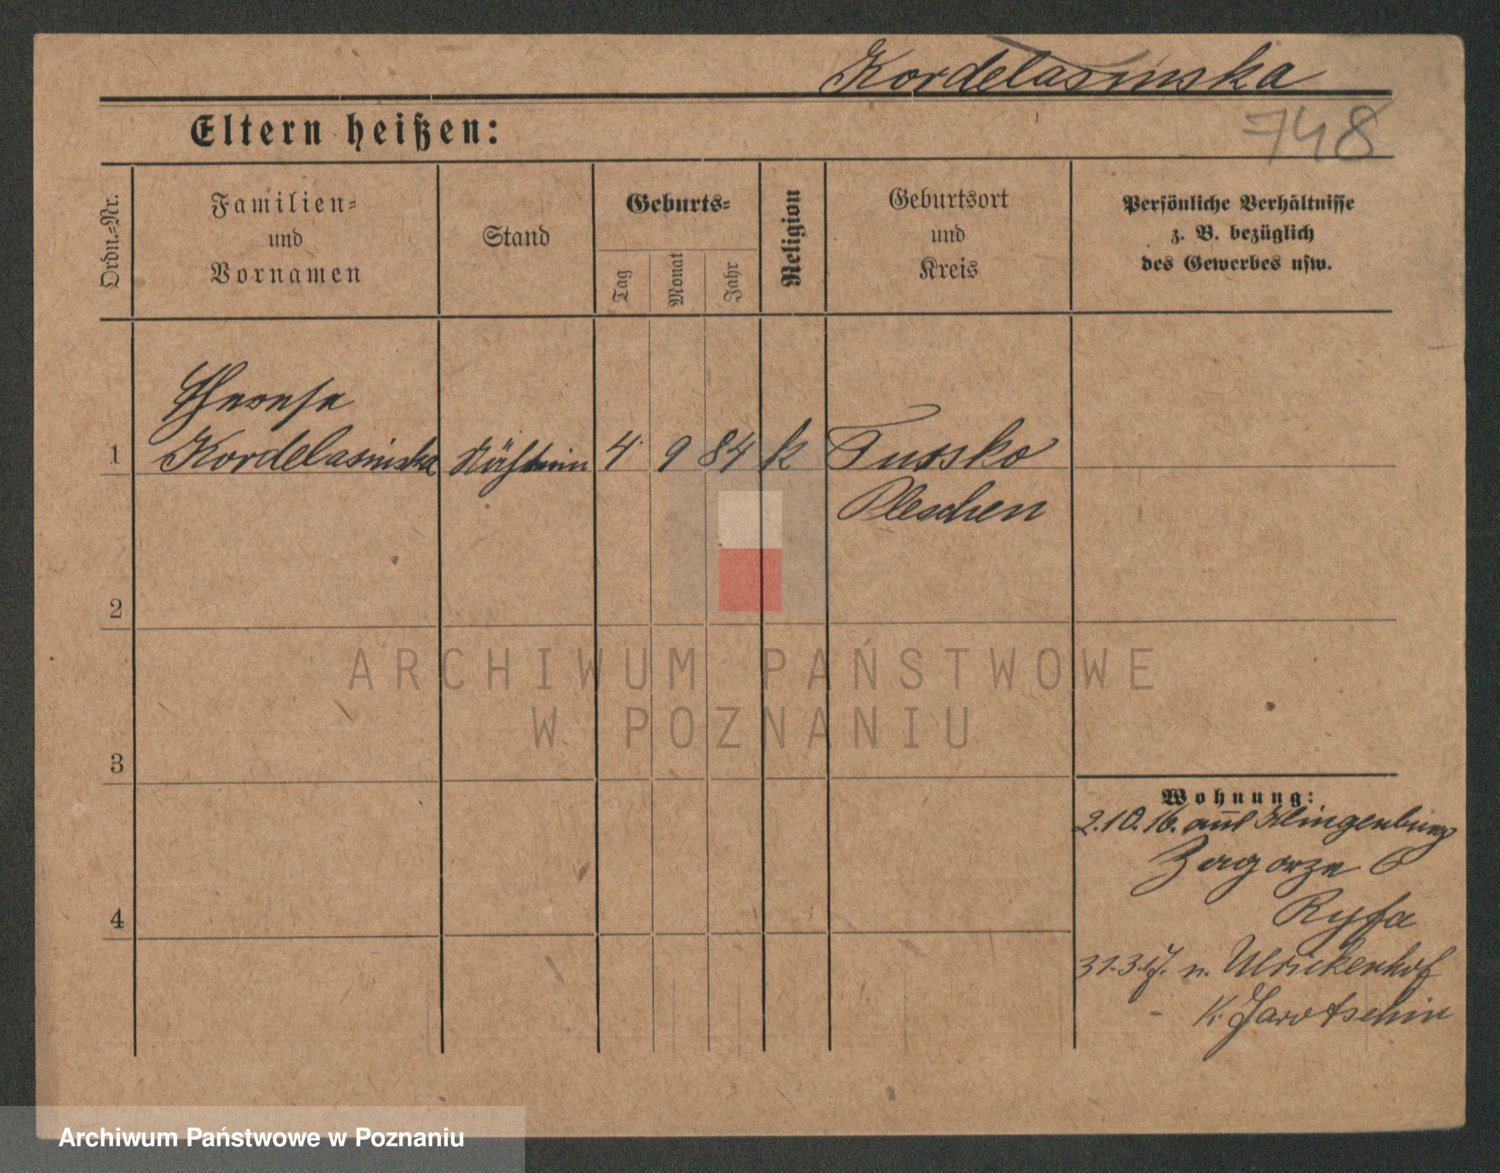 Kordelasinska
748
Eltern heißen:
Ordn.-Nr.
Familien-
und
Vornamen
Stand
Geburts-
Tag
Monat
Jahr
Religion
Geburtsort
und
Kreis
Persönliche Verhältnisse
z. B. bezüglich
des Gewerbes usw.
Therese
1 Kordelasinska Nähterin 4 9 84 k Tursko
Pleschen
2
3
4
Wohnung:
2.10.16. aus Klingenburg
Zagorze
31.3.17. n. Ulrickenhof
K. Jarotschin
ARCHIWUM PAŃSTWOWE
W POZNANIU
Archiwum Państwowe w Poznaniu